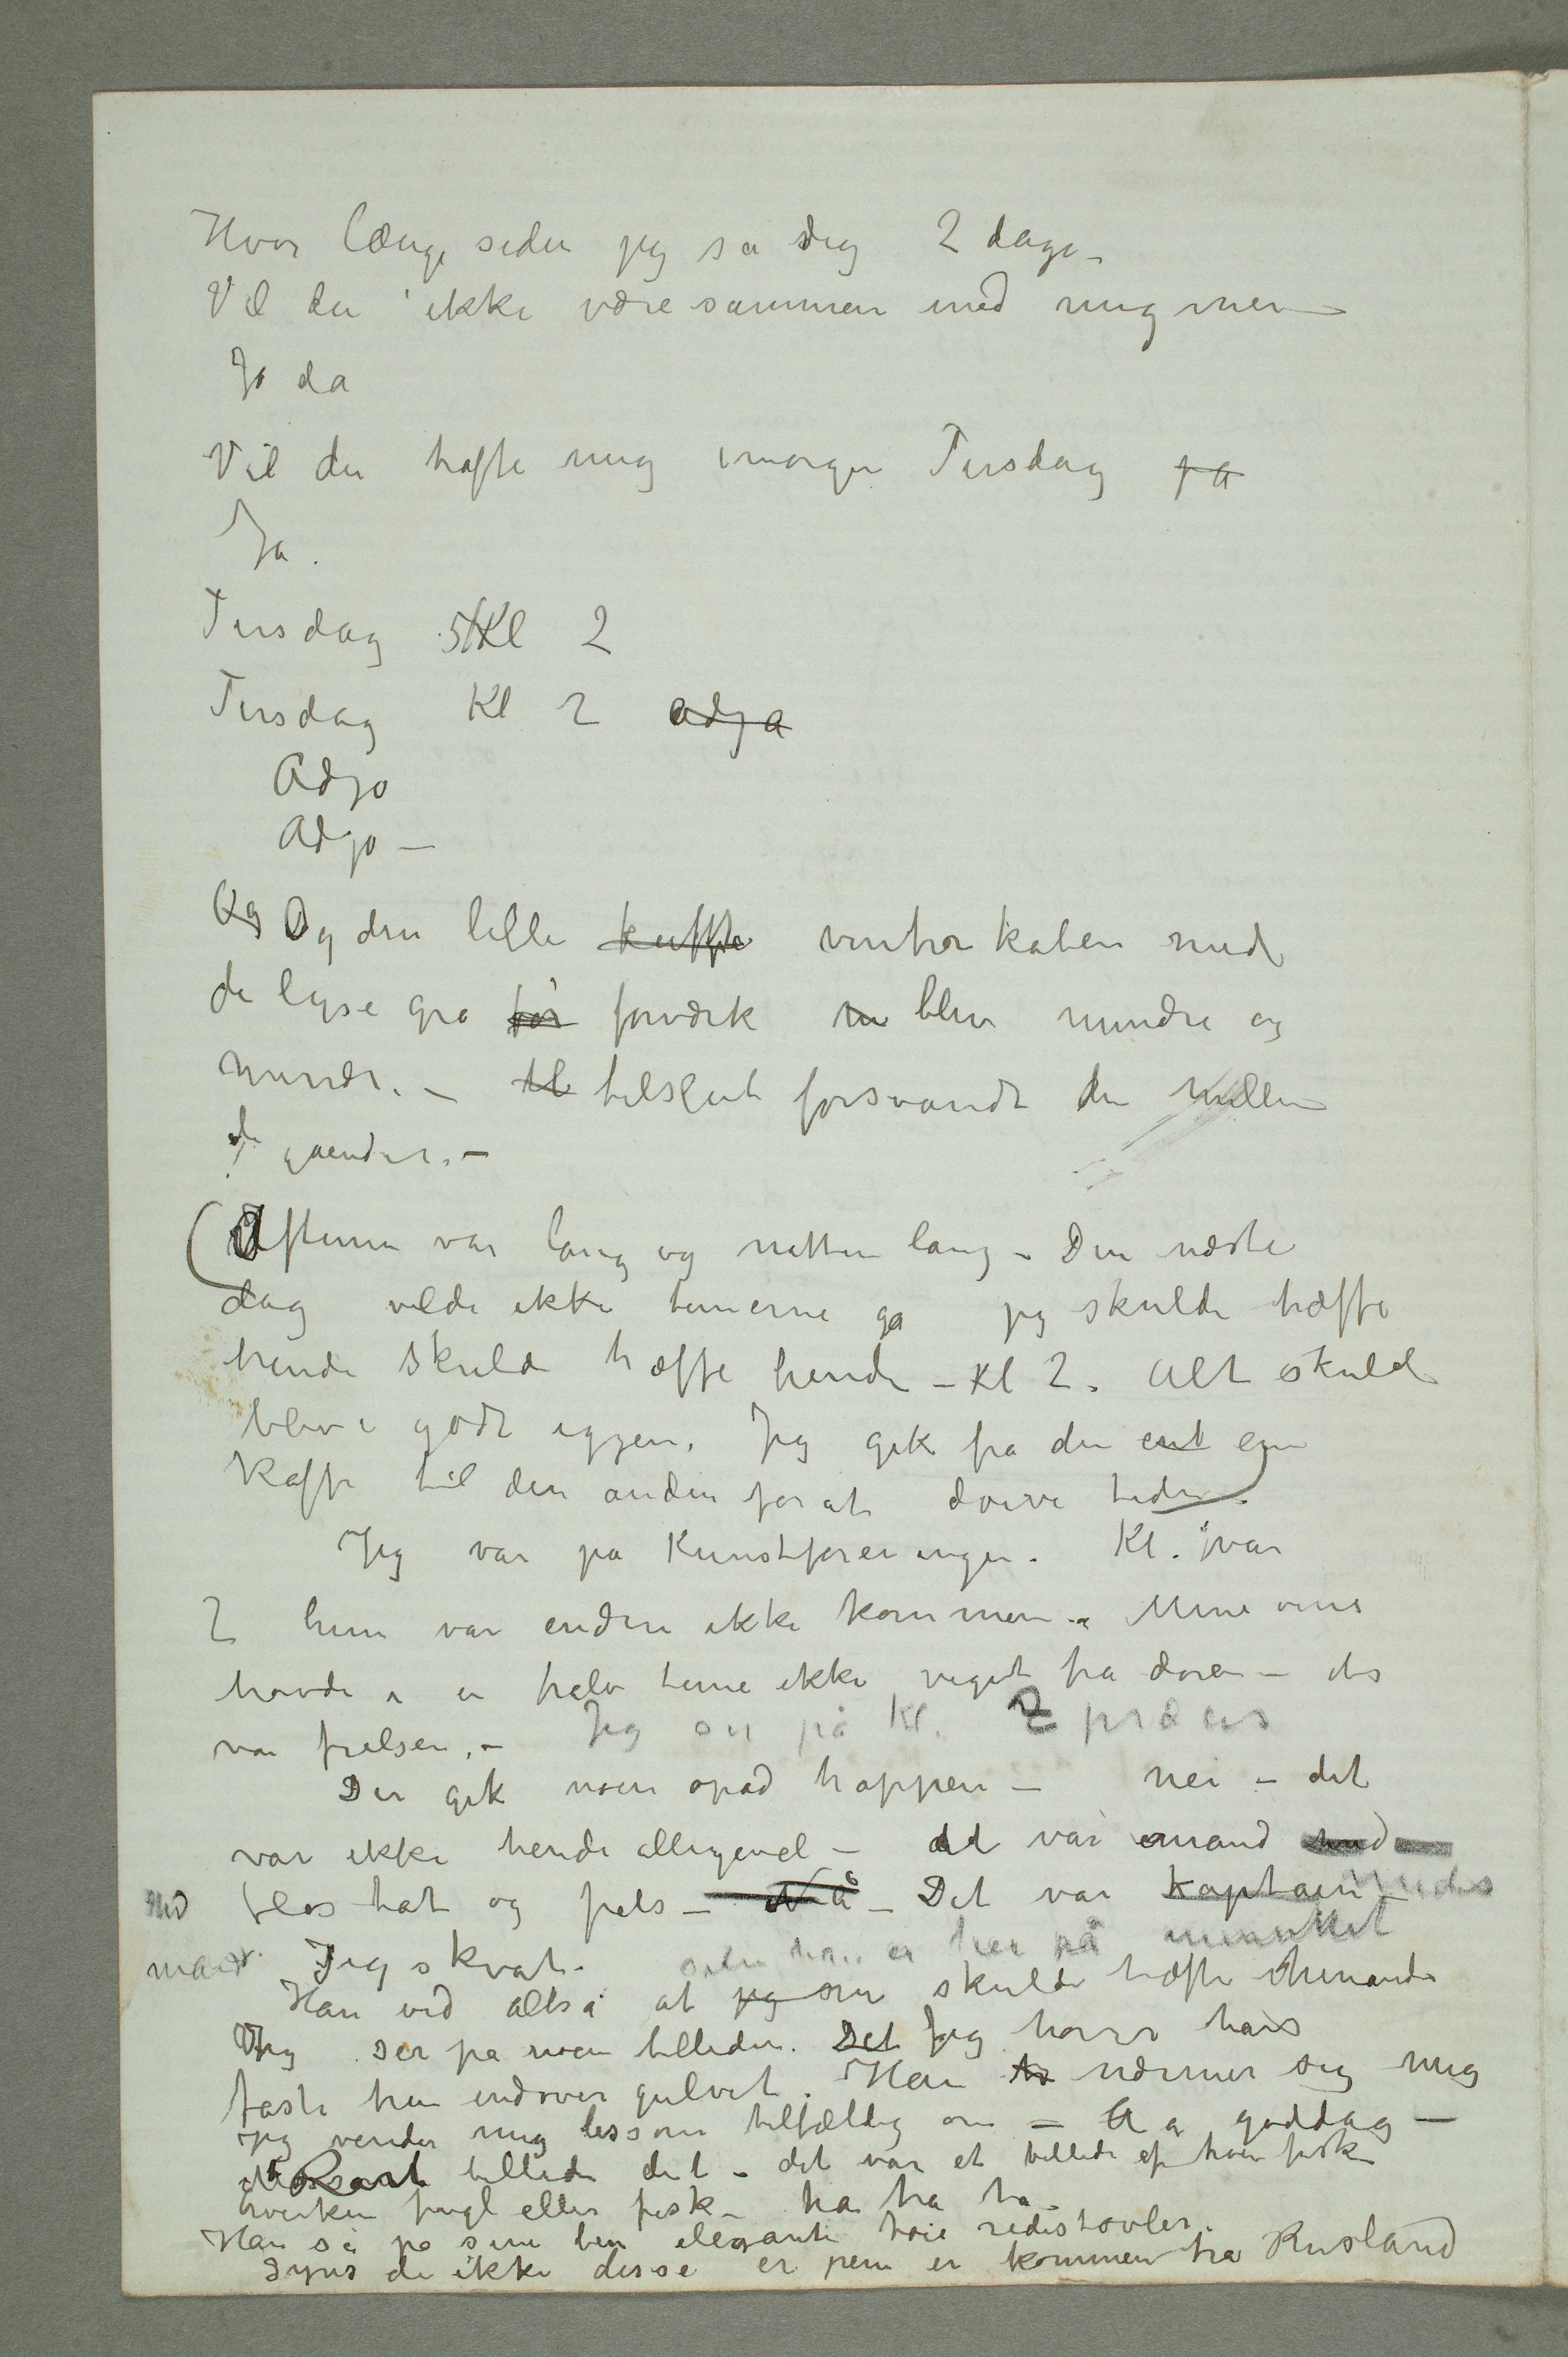 Hvor længe siden jeg så dig 2 dage –
Vil du ikke være sammen med mig mer –
Jo da
Vil du træffe mig imorgen Tirsdag ja
Ja.
Tirsdag Kl 2
Tirsdag Kl 2 adja
Adjo
Adjo –
Og Og den lille kaffe vinterkåben med
de lyse grå for forværk m blev mindre og
mindre. – til tilslut forsvandt den mellem
de gående. –
(Aftenen var lang og natten lang – Den næste
dag vilde ikke timerne gå jeg skulde træffe
hende skulde træffe hende – Kl 2. Alt skulde
blive godt iggjen. Jeg gik fra den ent ene
Kaffe til den anden for at drive tiden).
Jeg var på Kunstforeningen. Kl. var
2 hun var endnu ikke kommen. Mine øine
havde i en halv time ikke veget fra døren – det
var frelsen. – Jeg ser på Kl. 2 præcis
Der gik noen opad trappen – nei – det
var ikke hende alligevel – det var en mand med
flos hat og pels – Nå – Det var Kaptain
Jeg skvat. han er her på minuttet
Han ved altså at jeg vi skulde træffe hinanden
Jeg ser på noen billeder. Det Jeg hører hans
faste trin indover gulvet. Han nærmer sig mig
Jeg vender mig lissom tilfældig om – Aa goddag –
Rart billede det – det var et billede af hver fisk
hverken fugl eller fisk – ha ha ha –
Han så på sine ben elegante høie ridestøvler.
Syns de ikke disse er pene er kommen fra Rusland